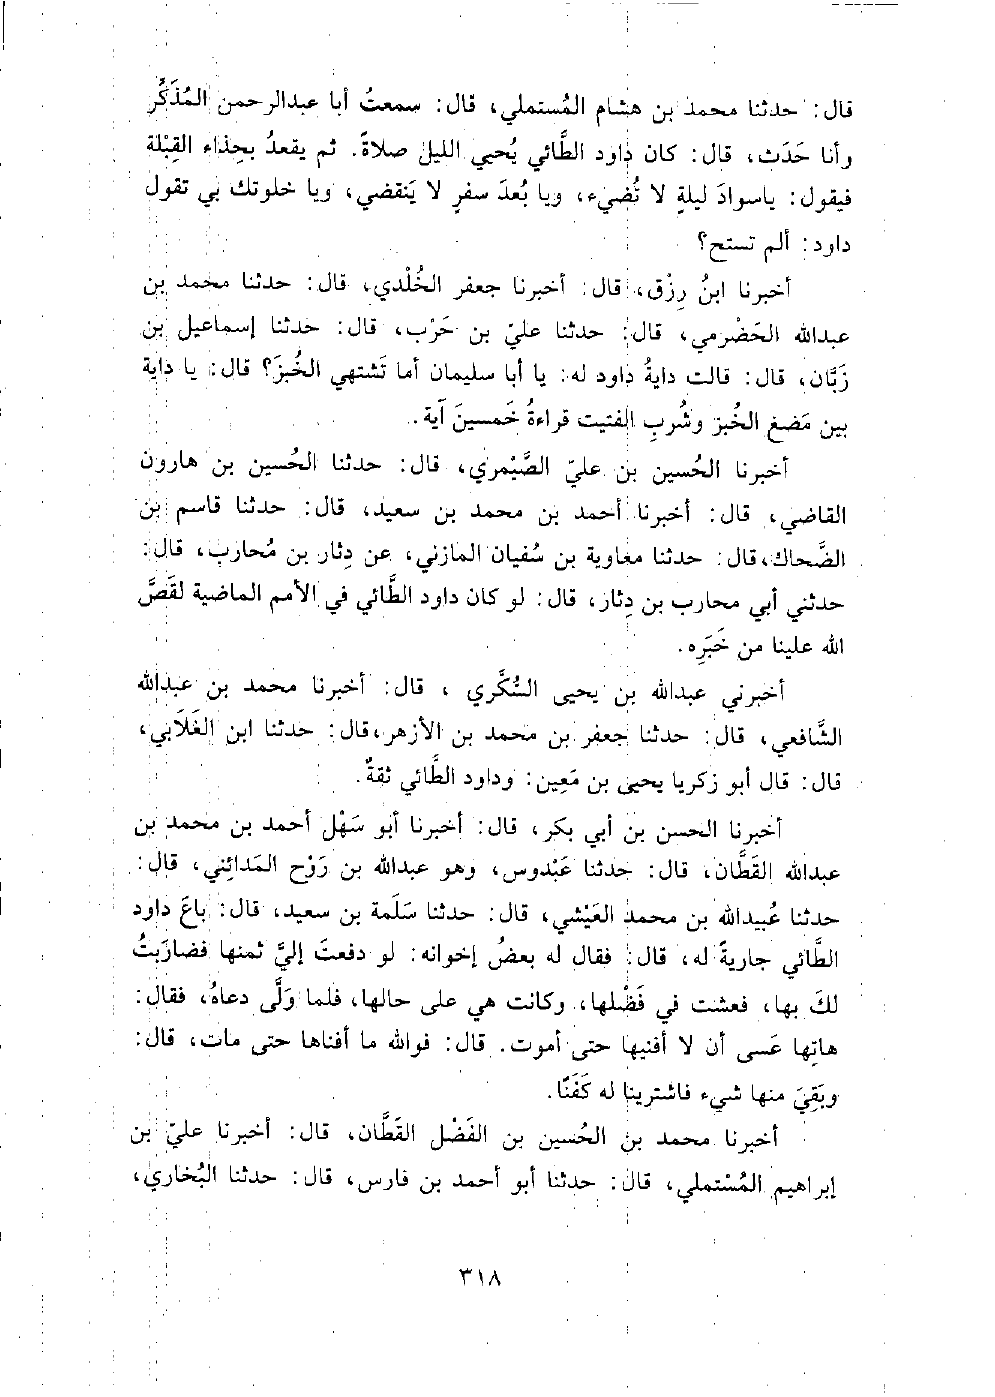 قال: حدثنا محمد بن هشام المُستملي، قال: سمعتُ أبا عبدالرحمن المُذَكِّر
وأنا حَدَث، قال: كان داود الطَّائي يُحيي الليل صلاةً. ثم يقعدُ بحِذاء القِبْلة
فيقول: ياسوادَ ليلةٍ لا تُضيء، ويا بُعدَ سفرٍ لا يَنقضي، ويا خلوتك بي تقول
داود: ألم تستح؟
أخبرنا ابنُ رِزْق، قال: أخبرنا جعفر الخُلْدي، قال: حدثنا محمد بن
عبدالله الحَضْرمي، قال: حدثنا عليّ بن حَرْب، قال: حدثنا إسماعيل بن
زَبَّان، قال: قالت دايةُ داود له: يا أبا سليمان أما تَشتهي الخُبزَ؟ قال: يا داية
بين مَضغِ الخُبز وشُربِ الفتيت قراءةُ خَمسينَ آية.
أخبرنا الحُسين بن عليّ الصَّيْمري، قال: حدثنا الحُسين بن هارون
القاضي، قال: أخبرنا أحمد بن محمد بن سعيد، قال: حدثنا قاسم بن
الضَّحاك، قال: حدثنا معاوية بن سُفيان المازني، عن دِثار بن مُحارب، قال:
حدثني أبي محارب بن دِثار، قال: لو كان داود الطَّائي في الأمم الماضية لقَصَّ
الله علينا من خَبَرِه.
أخبرني عبدالله بن يحيى السُّكَّري ، قال: أخبرنا محمد بن عبدالله
الشَّافعي، قال: حدثنا جعفر بن محمد بن الأزهر، قال: حدثنا ابن الغَلَابي،
قال: قال أبو زكريا يحيى بن مَعِين: وداود الطَّائي ثقةٌ.
أخبرنا الحسن بن أبي بكر، قال: أخبرنا أبو سَهْل أحمد بن محمد بن
عبدالله القَطَّان، قال: حدثنا عَبْدوس، وهو عبدالله بن رَوْح المَدائِني، قال:
حدثنا عُبيدالله بن محمد العَيْشي، قال: حدثنا سَلَمة بن سعيد، قال: باعَ داود
الطَّائي جاريةً له، قال: فقال له بعضُ إخوانه: لو دفعتَ إليَّ ثمنها فضارَبتُ
لكَ بها، فعشت في فَضْلها، وكانت هي على حالها، فلما وَلَّى دعاهُ، فقال:
هاتِها عَسى أن لا أفنيها حتى أموت. قال: فوالله ما أفناها حتى مات، قال:
وبَقِيَ منها شيء فاشترينا له كَفَنًا.
أخبرنا محمد بن الحُسين بن الفَضْل القَطَّان، قال: أخبرنا عليّ بن
إبراهيم المُسْتملي، قال: حدثنا أبو أحمد بن فارس، قال: حدثنا البُخاري،
٣١٨